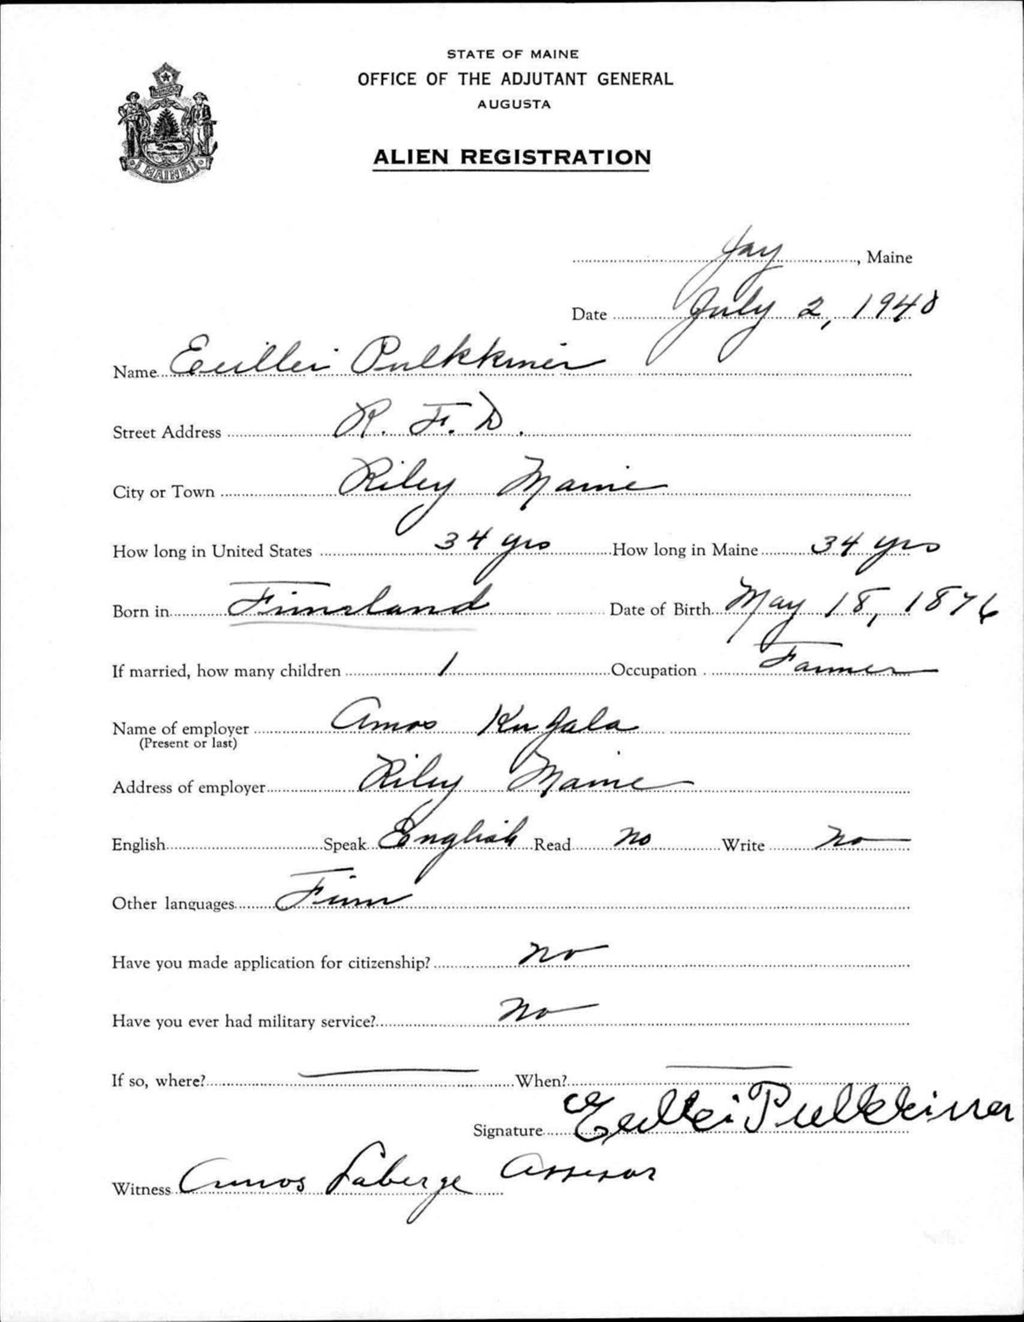 STATE OF MAINE
OFFICE OF THE ADJUTANT GENERAL
AUGUSTA
ALIEN REGISTRATION
MAINE
Jay, Maine
Date July 2, 1940
Name Euillei Pulkkinen
Street Address R. F. D.
City or Town Riley Maine
How long in United States 34 yrs How long in Maine 34 yrs
Born in Finnland Date of Birth May 18, 1876
If married, how many children 1 Occupation Farmer
Name of employer Amos
(Present or last)
Address of employer Riley Maine
English Speak English Read no Write no
Other languages Finn
Have you made application for citizenship? no
Have you ever had military service? No
If so, where? — When? —
Signature Pulkkinen
Witness Amos Laberge Assessor